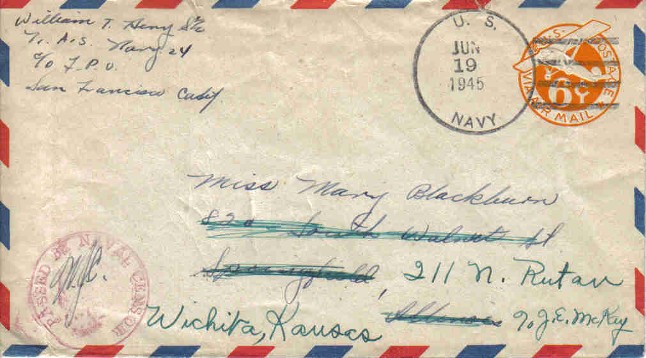 William T. Henry S2/c
Navy 24
c/o F.P.O.
San Francisco Calif
U. S.
JUN
19
1945
NAVY
U.S. POSTAGE
6¢
VIA AIR MAIL
Miss Mary Blackburn
820 South Walnut St
Springfield, 211 N. Rutan
Illinois c/o J.E. McKay
Wichita, Kansas
PASSED BY NAVAL CENSOR